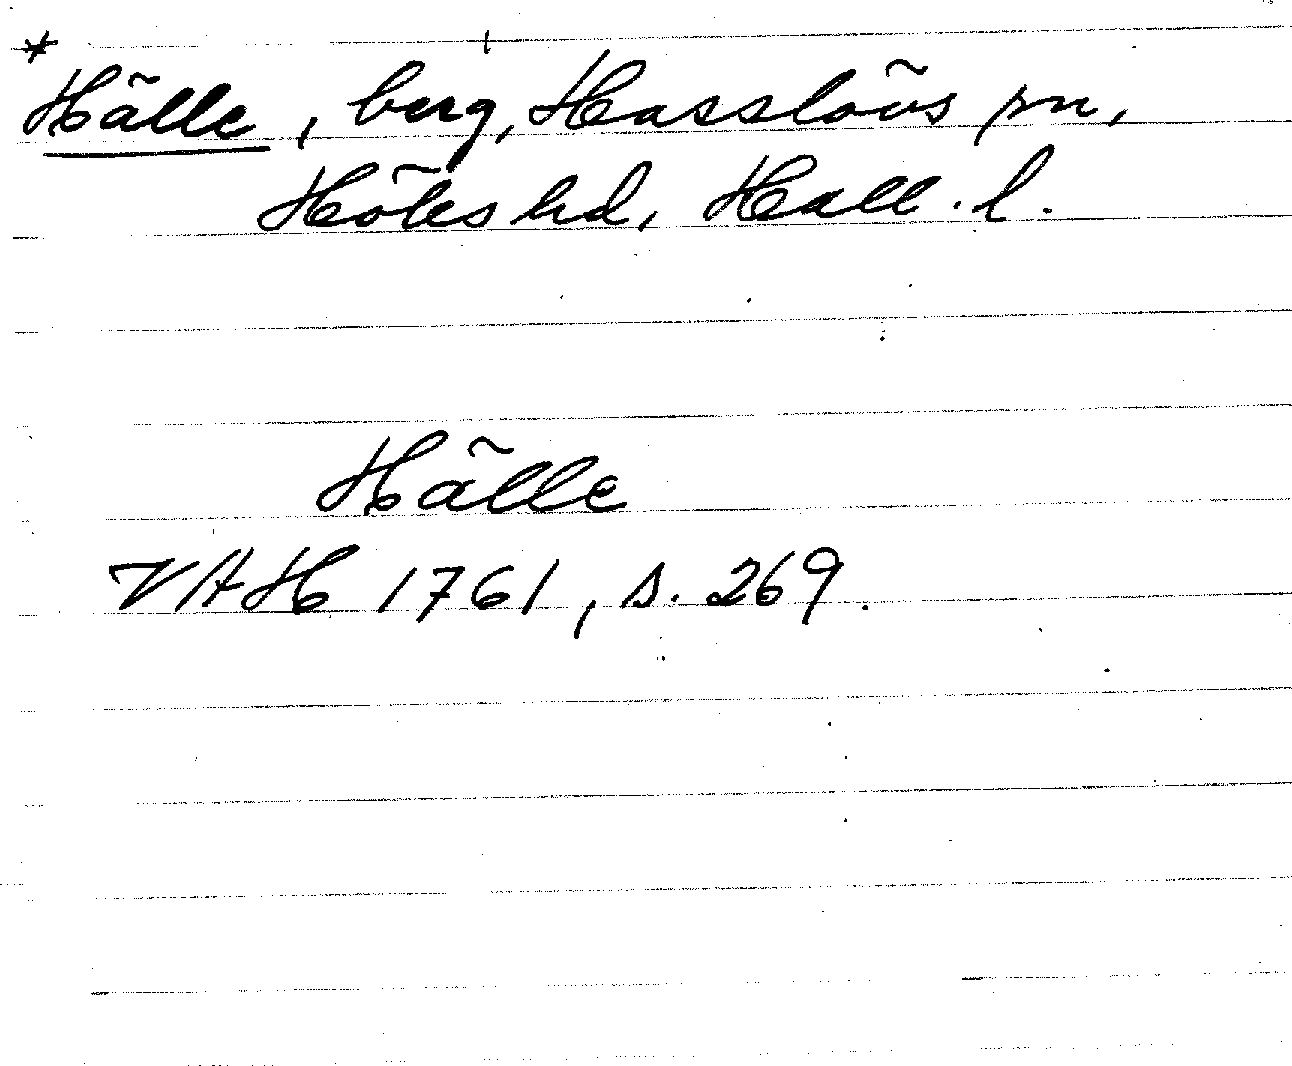 *
Hälle, berg, Hasslövs sn,
Höks hd, Hall. l.
Hälle
VAH 1761, s. 269.